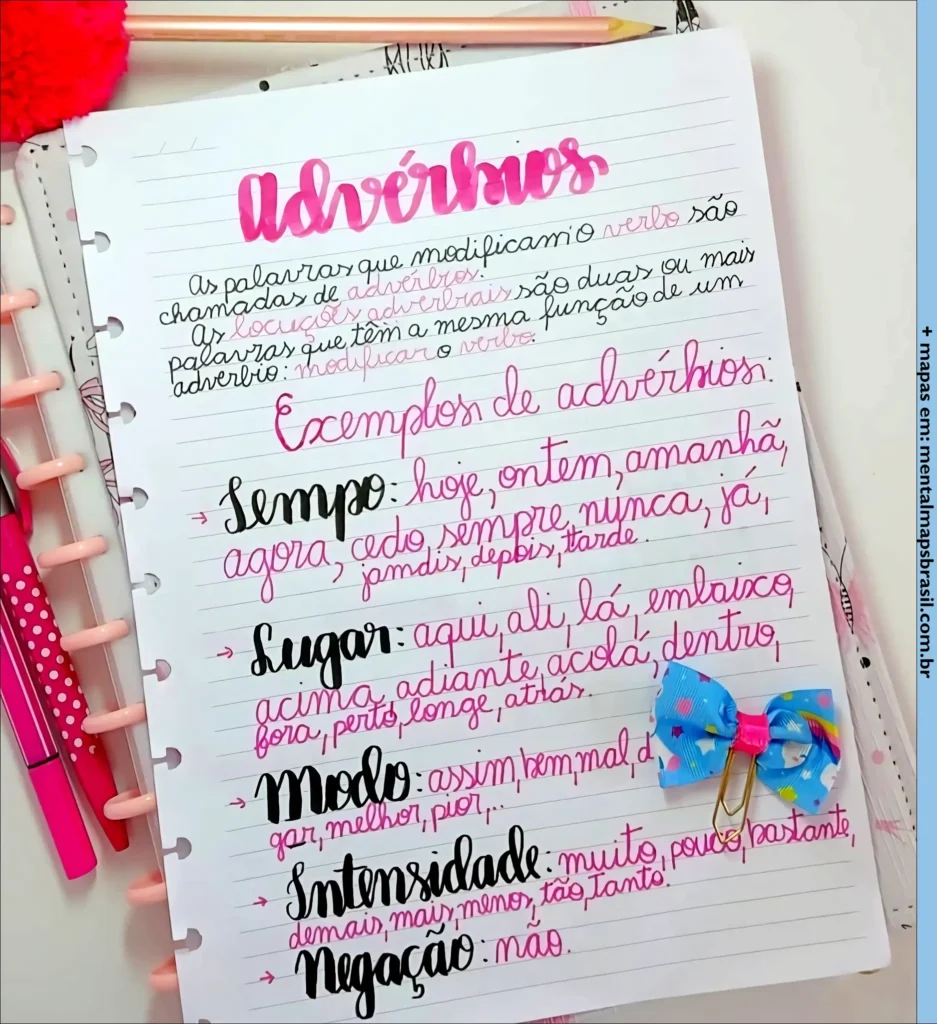 Advérbios
As palavras que modificam o verbo são
chamadas de advérbios.
As locuções adverbiais são duas ou mais
palavras que têm a mesma função de um
advérbio: modificar o verbo.
Exemplos de advérbios:
→ Tempo: hoje, ontem, amanhã,
agora, cedo, sempre, nunca, já,
jamais, depois, tarde.
→ Lugar: aqui, ali, lá, embaixo,
acima, adiante, acolá, dentro,
fora, perto, longe, atrás.
→ Modo: assim, bem, mal, d
gar, melhor, pior,...
→ Intensidade: muito, pouco, bastante,
demais, mais, menos, tão, tanto.
→ Negação: não.
+ mapas em: mentalmapsbrasil.com.br